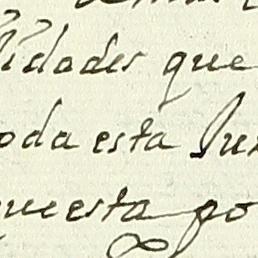 lidades que
oda esta Jun
que esta po